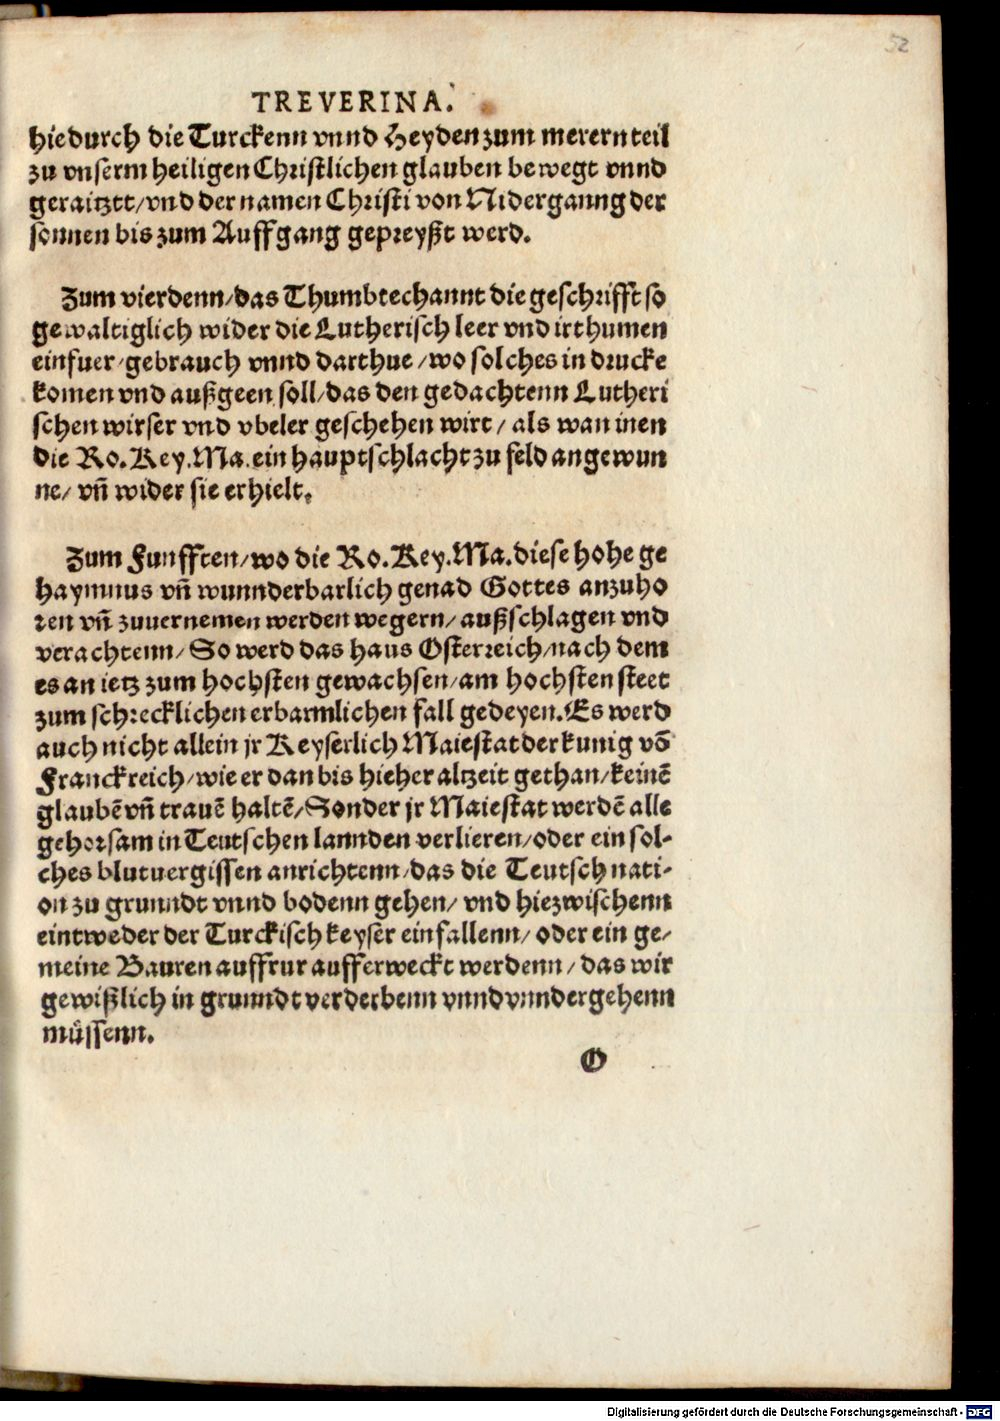 52
TREVERINA.
hiedurch die Turckenn vnnd Heyden zum merern teil
zu vnserm heiligen Christlichen glauben bewegt vnnd
geraitztt/vnd der namen Christi von Niderganng der
sonnen bis zum Auffgang gepreyßt werd.
Zum vierdenn/das Thumbtechannt die geschrifft so
gewaltiglich wider die Lutherisch leer vnd irthumen
einfuer/gebrauch vnnd darthue/wo solches in drucke
komen vnd außgeen soll/das den gedachtenn Lutheri
schen wirser vnd vbeler geschehen wirt/als wan inen
die Ro.Key.Ma.ein hauptschlacht zu feld angewun
ne/vñ wider sie erhielt.
Zum Funfften/wo die Ro.Key.Ma.diese hohe ge
haymnus vñ wunnderbarlich genad Gottes anzuho
ren vñ zuuernemen werden wegern/außschlagen vnd
verachtenn/So werd das haus Osterreich/nach dem
es an ietz zum hochsten gewachsen/am hochsten steet
zum schrecklichen erbarmlichen fall gedeyen.Es werd
auch nicht allein jr Keyserlich Maiestat der kunig võ
Franckreich/wie er dan bis hieher altzeit gethan/keinẽ
glaubẽ vñ trauẽ haltẽ/Sonder jr Maiestat werdẽ alle
gehorsam in Teutschen lannden verlieren/oder ein sol-
ches blutuergissen anrichtenn/das die Teutsch nati-
on zu grunndt vnnd bodenn gehen/vnd hiezwischenn
eintweder der Turckisch keyser einfallenn/oder ein ge/
meine Bauren auffrur aufferweckt werdenn/das wir
gewißlich in grunndt verderbenn vnnd vnndergehenn
müssenn.
O
Digitalisierung gefördert durch die Deutsche Forschungsgemeinschaft - DFG